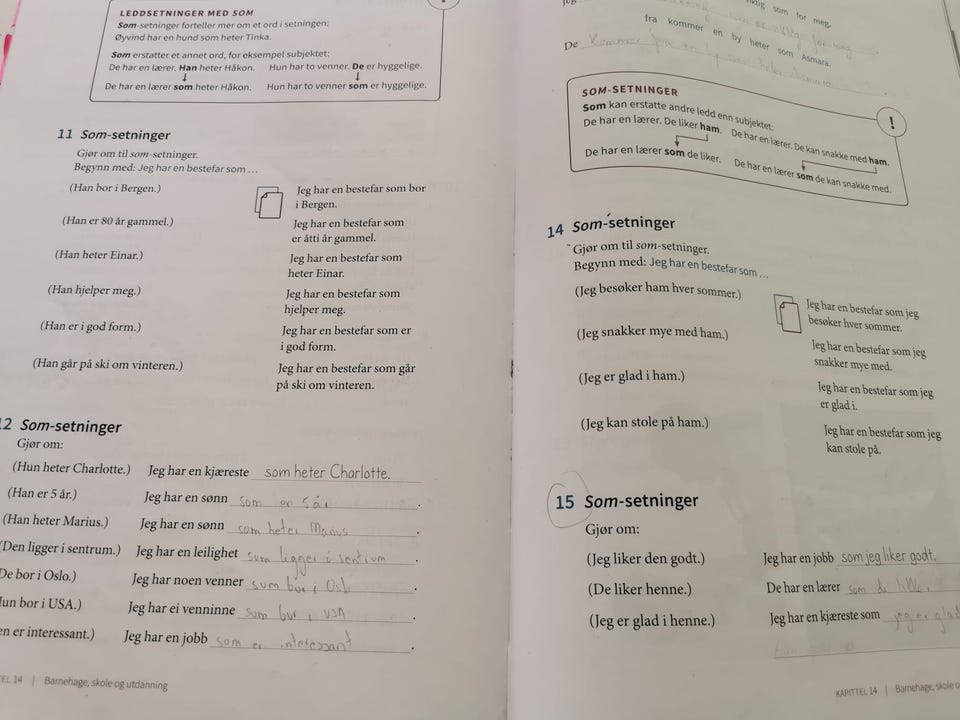 LEDDSETNINGER MED SOM
Som-setninger forteller mer om et ord i setningen:
Øyvind har en hund som heter Tinka.
Som erstatter et annet ord, for eksempel subjektet:
De har en lærer. Han heter Håkon. Hun har to venner. De er hyggelige.
De har en lærer som heter Håkon. Hun har to venner som er hyggelige.
11 Som-setninger
Gjør om til som-setninger.
Begynn med: Jeg har en bestefar som ...
(Han bor i Bergen.) Jeg har en bestefar som bor
i Bergen.
(Han er 80 år gammel.) Jeg har en bestefar som
er åtti år gammel.
(Han heter Einar.) Jeg har en bestefar som
heter Einar.
(Han hjelper meg.) Jeg har en bestefar som
hjelper meg.
(Han er i god form.) Jeg har en bestefar som er
i god form.
(Han går på ski om vinteren.) Jeg har en bestefar som går
på ski om vinteren.
12 Som-setninger
Gjør om:
(Hun heter Charlotte.) Jeg har en kjæreste som heter Charlotte.
(Han er 5 år.) Jeg har en sønn som er 5 år.
(Han heter Marius.) Jeg har en sønn som heter Marius.
(Den ligger i sentrum.) Jeg har en leilighet som ligger i sentrum.
De bor i Oslo.) Jeg har noen venner som bor i Oslo.
un bor i USA.) Jeg har ei venninne som bor i USA.
en er interessant.) Jeg har en jobb som er interessant.
EL 14 | Barnehage, skole og utdanning
som for meg.
fra kommer en by heter som Asmara.
De kommer fra en by som heter Asmara
SOM-SETNINGER
Som kan erstatte andre ledd enn subjektet:
De har en lærer. De liker ham. De har en lærer. De kan snakke med ham.
De har en lærer som de liker. De har en lærer som de kan snakke med.
!
14 Som-setninger
Gjør om til som-setninger.
Begynn med: Jeg har en bestefar som ...
(Jeg besøker ham hver sommer.) Jeg har en bestefar som jeg
besøker hver sommer.
(Jeg snakker mye med ham.) Jeg har en bestefar som jeg
snakker mye med.
(Jeg er glad i ham.) Jeg har en bestefar som jeg
er glad i.
(Jeg kan stole på ham.) Jeg har en bestefar som jeg
kan stole på.
15 Som-setninger
Gjør om:
(Jeg liker den godt.) Jeg har en jobb som jeg liker godt.
(De liker henne.) De har en lærer som de liker.
(Jeg er glad i henne.) Jeg har en kjæreste som jeg er glad
KAPITTEL 14 | Barnehage, skole o